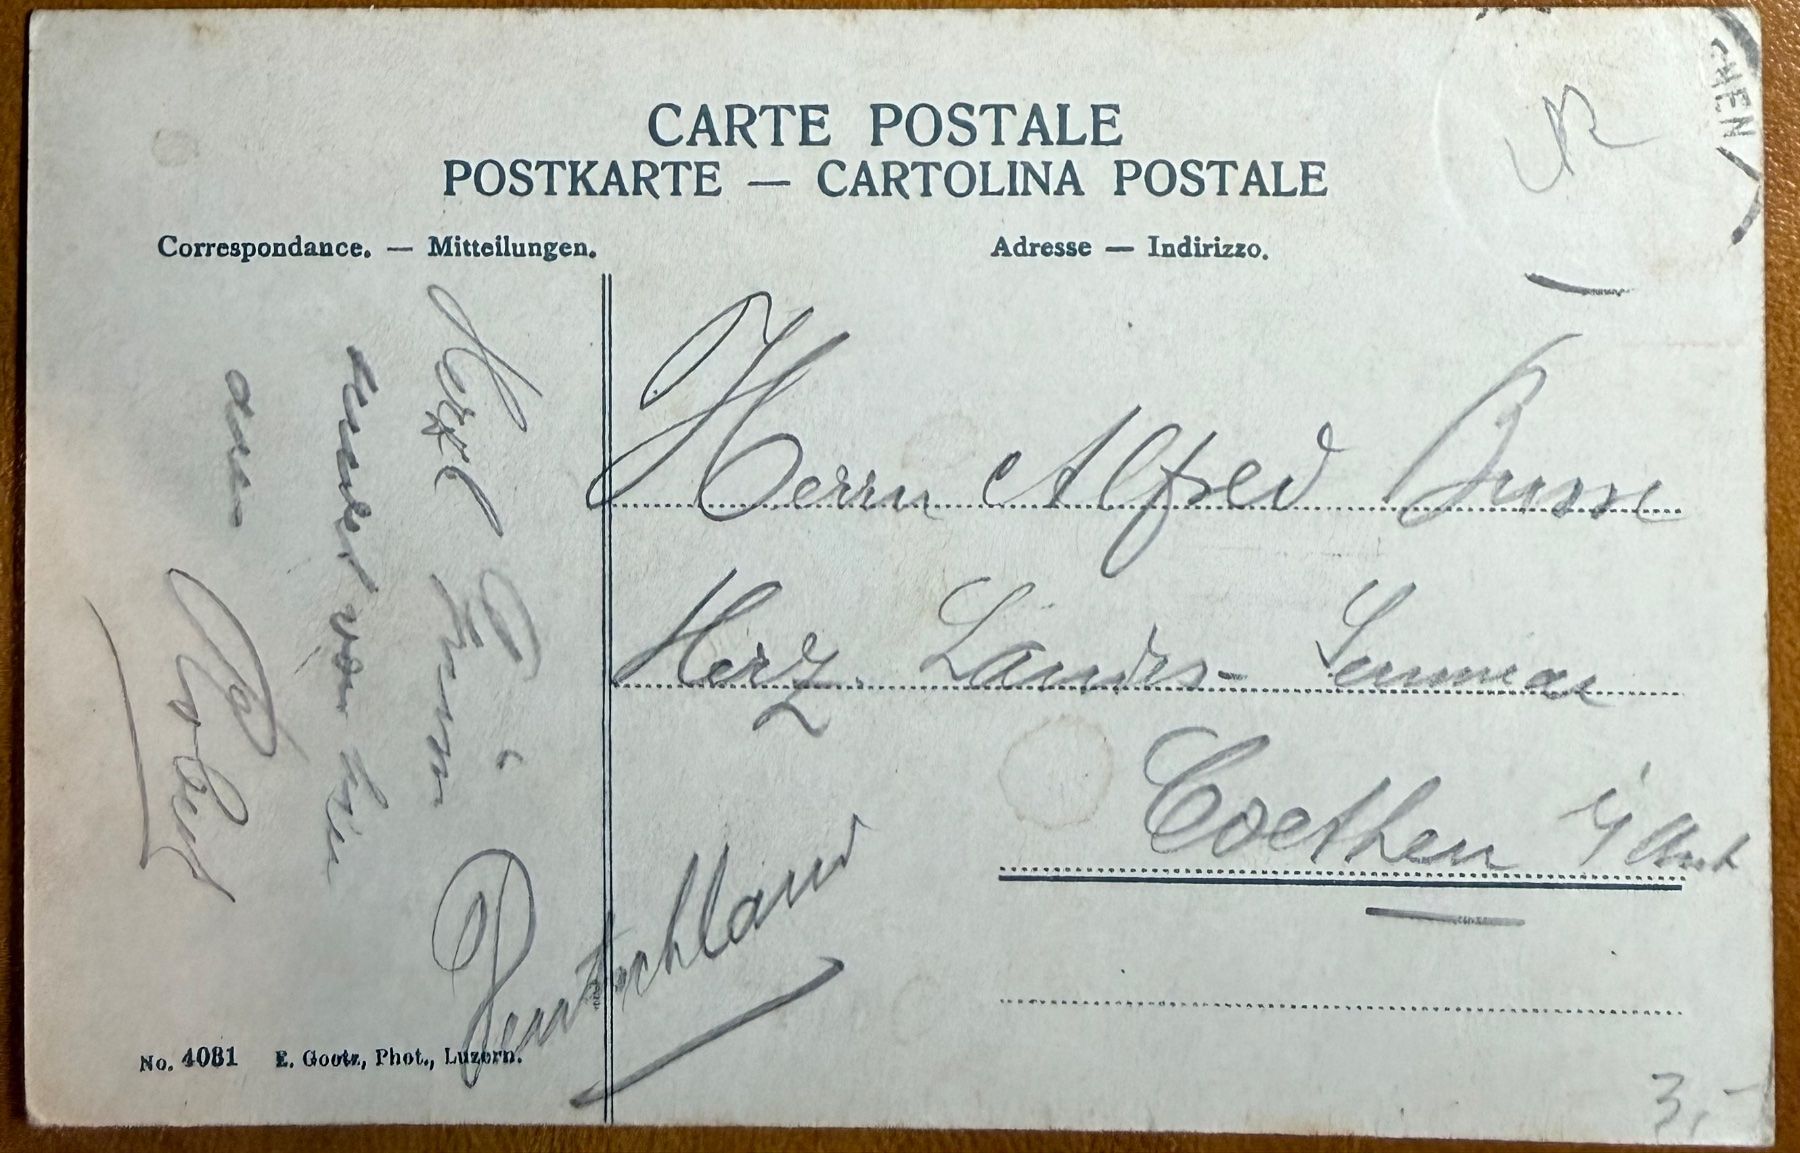 CARTE POSTALE
POSTKARTE — CARTOLINA POSTALE
Correspondance. — Mitteilungen.
Adresse — Indirizzo.
CHEN
Herzl
von hier
Robert
Herrn Alfred Busse
Herz. Landes-Seminar
Coethen i/Anh
Deutschland
No. 4081 E. Goetz, Phot., Luzern.
3,-